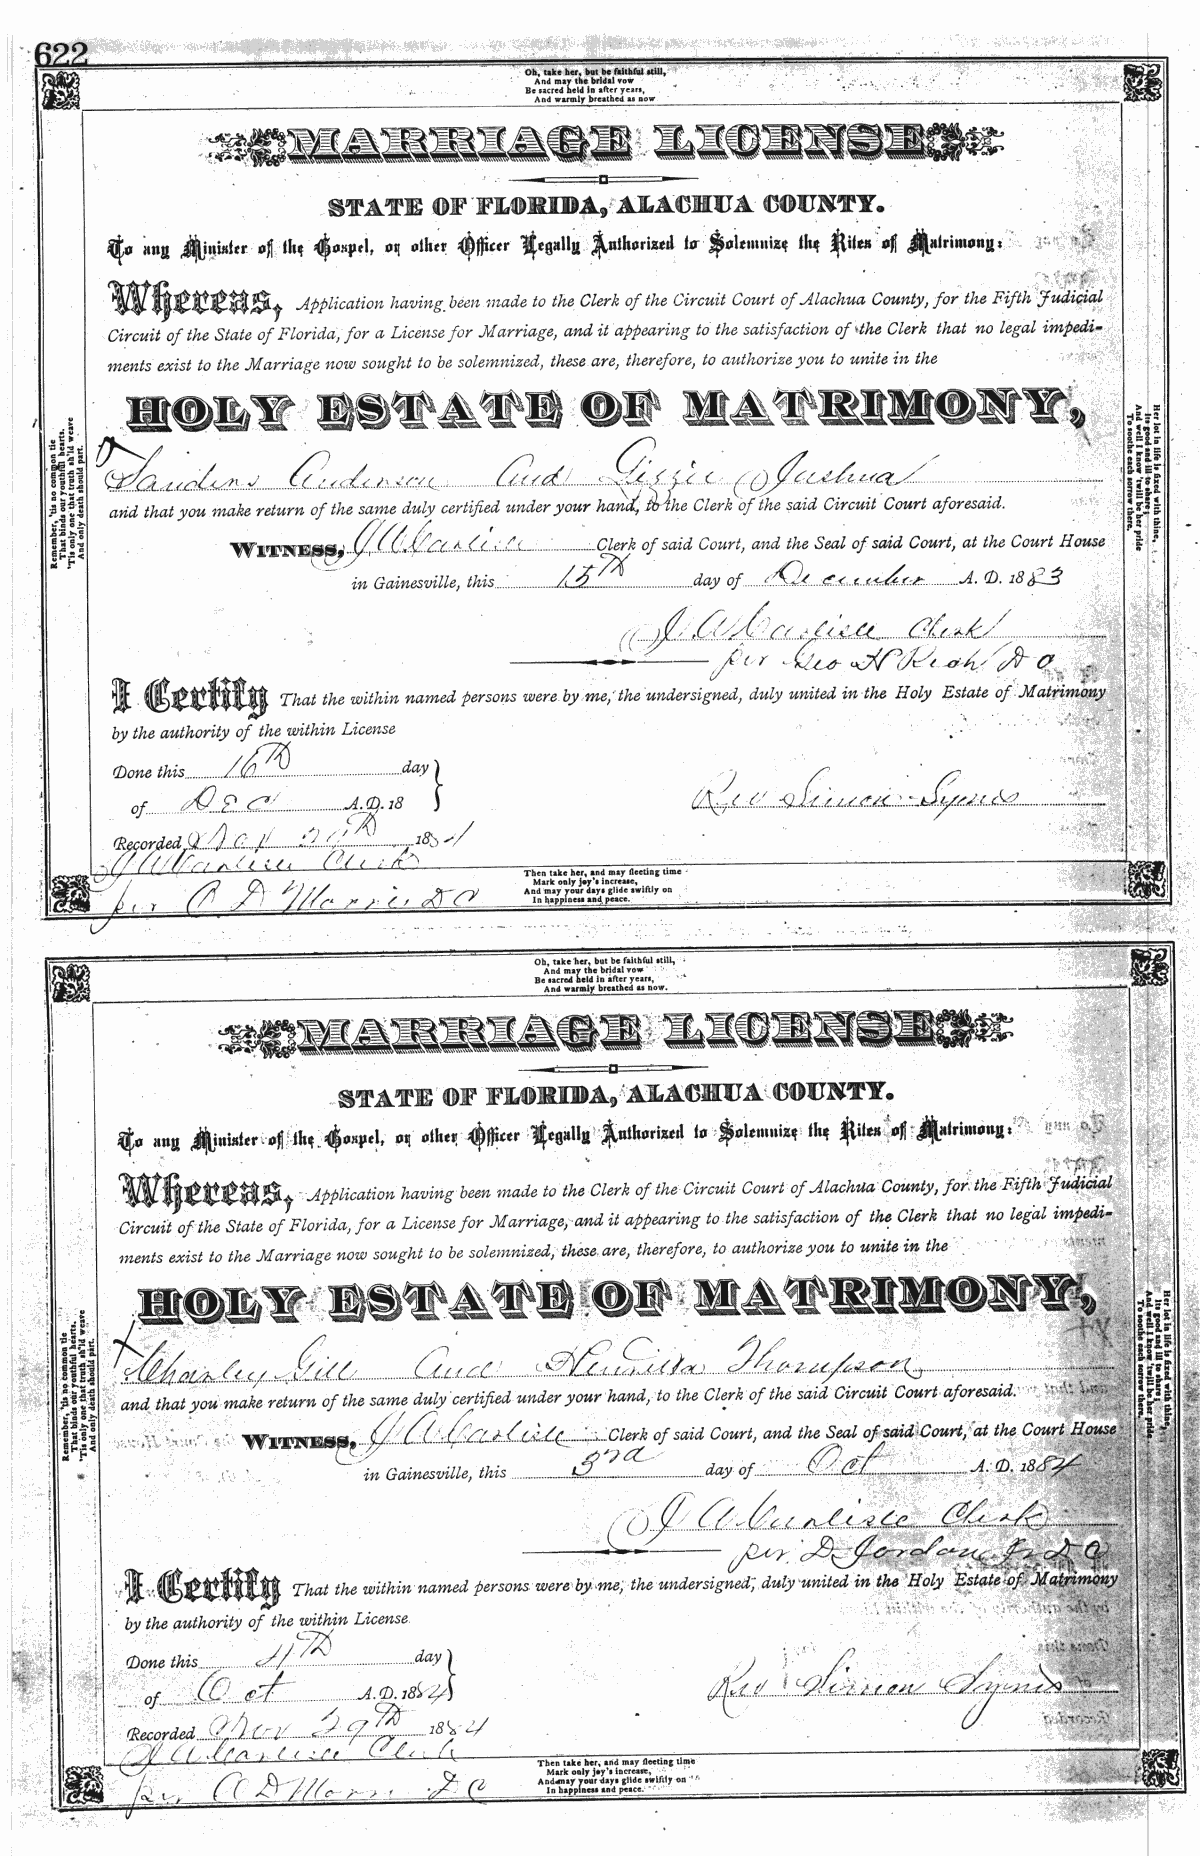 622
Oh, take her, but be faithful still,
And may the bridal vow
Be sacred held in after years,
And warmly breathed as now
MARRIAGE LICENSE
STATE OF FLORIDA, ALACHUA COUNTY.
To any Minister of the Gospel, or other Officer Legally Authorized to Solemnize the Rites of Matrimony:
Whereas, Application having been made to the Clerk of the Circuit Court of Alachua County, for the Fifth Judicial
Circuit of the State of Florida, for a License for Marriage, and it appearing to the satisfaction of the Clerk that no legal impedi-
ments exist to the Marriage now sought to be solemnized, these are, therefore, to authorize you to unite in the
HOLY ESTATE OF MATRIMONY,
Remember, 'tis no common tie
That binds our youthful hearts.
'Tis only one that truth sh'ld weave
And only death should part.
Her lot in life is fixed with thine,
Its good and ill to share;
And well I know 'twill be her pride
To soothe each sorrow there.
Sanders Anderson And Lizzie Joshua
and that you make return of the same duly certified under your hand, to the Clerk of the said Circuit Court aforesaid.
WITNESS, J A Carlisle Clerk of said Court, and the Seal of said Court, at the Court House
in Gainesville, this 15th day of December A. D. 1883
J A Carlisle Clerk
per Geo H D C
I Certify That the within named persons were by me, the undersigned, duly united in the Holy Estate of Matrimony
by the authority of the within License
Done this 16th day
of Dec A. D. 18
Rev Simon Symes
Recorded 1884
J A Carlisle Clerk
per A D Morris D C
Then take her, and may fleeting time
Mark only joy's increase,
And may your days glide swiftly on
In happiness and peace.
Oh, take her, but be faithful still,
And may the bridal vow
Be sacred held in after years,
And warmly breathed as now.
MARRIAGE LICENSE
STATE OF FLORIDA, ALACHUA COUNTY.
To any Minister of the Gospel, or other Officer Legally Authorized to Solemnize the Rites of Matrimony:
Whereas, Application having been made to the Clerk of the Circuit Court of Alachua County, for the Fifth Judicial
Circuit of the State of Florida, for a License for Marriage, and it appearing to the satisfaction of the Clerk that no legal impedi-
ments exist to the Marriage now sought to be solemnized, these are, therefore, to authorize you to unite in the
HOLY ESTATE OF MATRIMONY,
Remember, 'tis no common tie
That binds our youthful hearts,
'Tis only one that truth sh'ld weave
And only death should part.
Her lot in life is fixed with thine,
Its good and ill to share;
And well I know 'twill be her pride
To soothe each sorrow there.
X
Charley Gill And Henrietta Thompson
and that you make return of the same duly certified under your hand, to the Clerk of the said Circuit Court aforesaid.
WITNESS, J A Carlisle Clerk of said Court, and the Seal of said Court, at the Court House
in Gainesville, this 3rd day of Oct A. D. 1884
J A Carlisle Clerk
per D Jordan Jr D C
I Certify That the within named persons were by me, the undersigned, duly united in the Holy Estate of Matrimony
by the authority of the within License
Done this 4th day
of Oct A. D. 1884
Rev Simon Symes
Recorded Nov 29th 1884
J A Carlisle Clerk
per A D Morris D C
Then take her, and may fleeting time
Mark only joy's increase,
And may your days glide swiftly on
In happiness and peace.